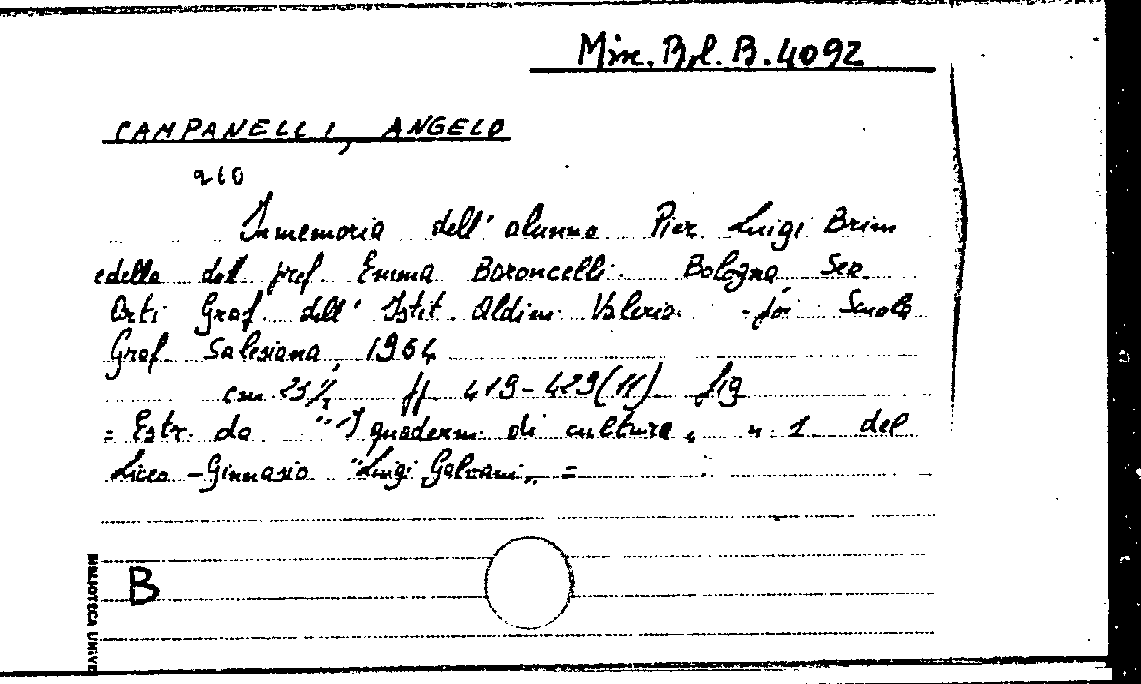 Misc. Bol. B. 4092
CAMPANELLI, ANGELO
210
In memoria dell'alunno Pier Luigi Brini
e della del prof Emma Baroncelli. Bologna, Sez.
Arti Graf. dell'Istit. Aldini Valerio. - poi Scuola
Graf. Salesiana, 1964
cm. 23½ ff 419-429(11) fig
= Estr. da "I quaderni di cultura" n. 1. del
Liceo-Ginnasio "Luigi Galvani" =
B
BIBLIOTECA UNIVE